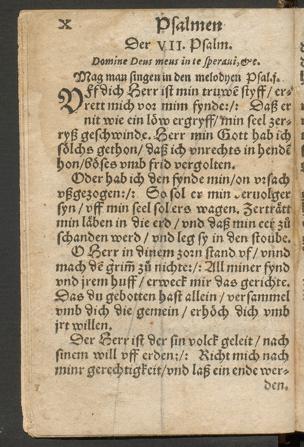 x Psalmen
Der VII. Psalm.
Domine Deus meus in te speraui, &c.
Mag man singen in den melodyen Psal.f.
VFf dich Herr ist min truwẽ styff / er-
rett mich vor mim fynde:/: Daß er
nit wie ein löw ergryff / min seel zer-
ryß geschwinde. Herr min Gott hab ich
sölchs gethon / daß ich vnrechts in hendẽ
hon / böses vmb frid vergolten.
Oder hab ich den fynde min / on vrsach
vßgezogen:/: So sol er min veruolger
syn / vff min seel sol ers wagen. Zerträtt
min läben in die erd / vnd daß min eer zů
schanden werd / vnd leg sy in den stoube.
O Herr in dinem zorn stand vf / vnnd
mach dẽ grim̃ zů nichte:/: All miner fynd
vnd jrem huff / erweck mir das gerichte.
Das du gebotten hast allein / versammel
vmb dich die gemein / erhöch dich vmb
jrt willen.
Der Herr ist der sin volck geleit / nach
sinem will vff erden:/: Richt mich nach
minr gerechtigkeit / vnd laß ein ende wer-
den.